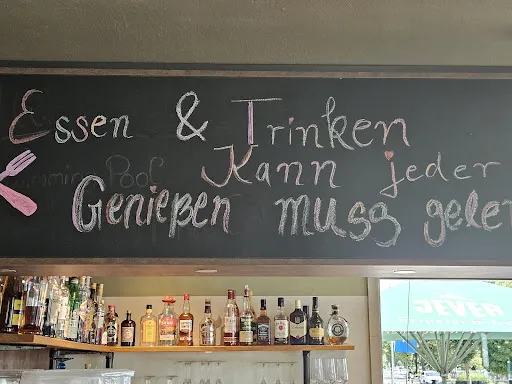 Essen & Trinken
Kann jeder
Genießen muss geler
JEVER